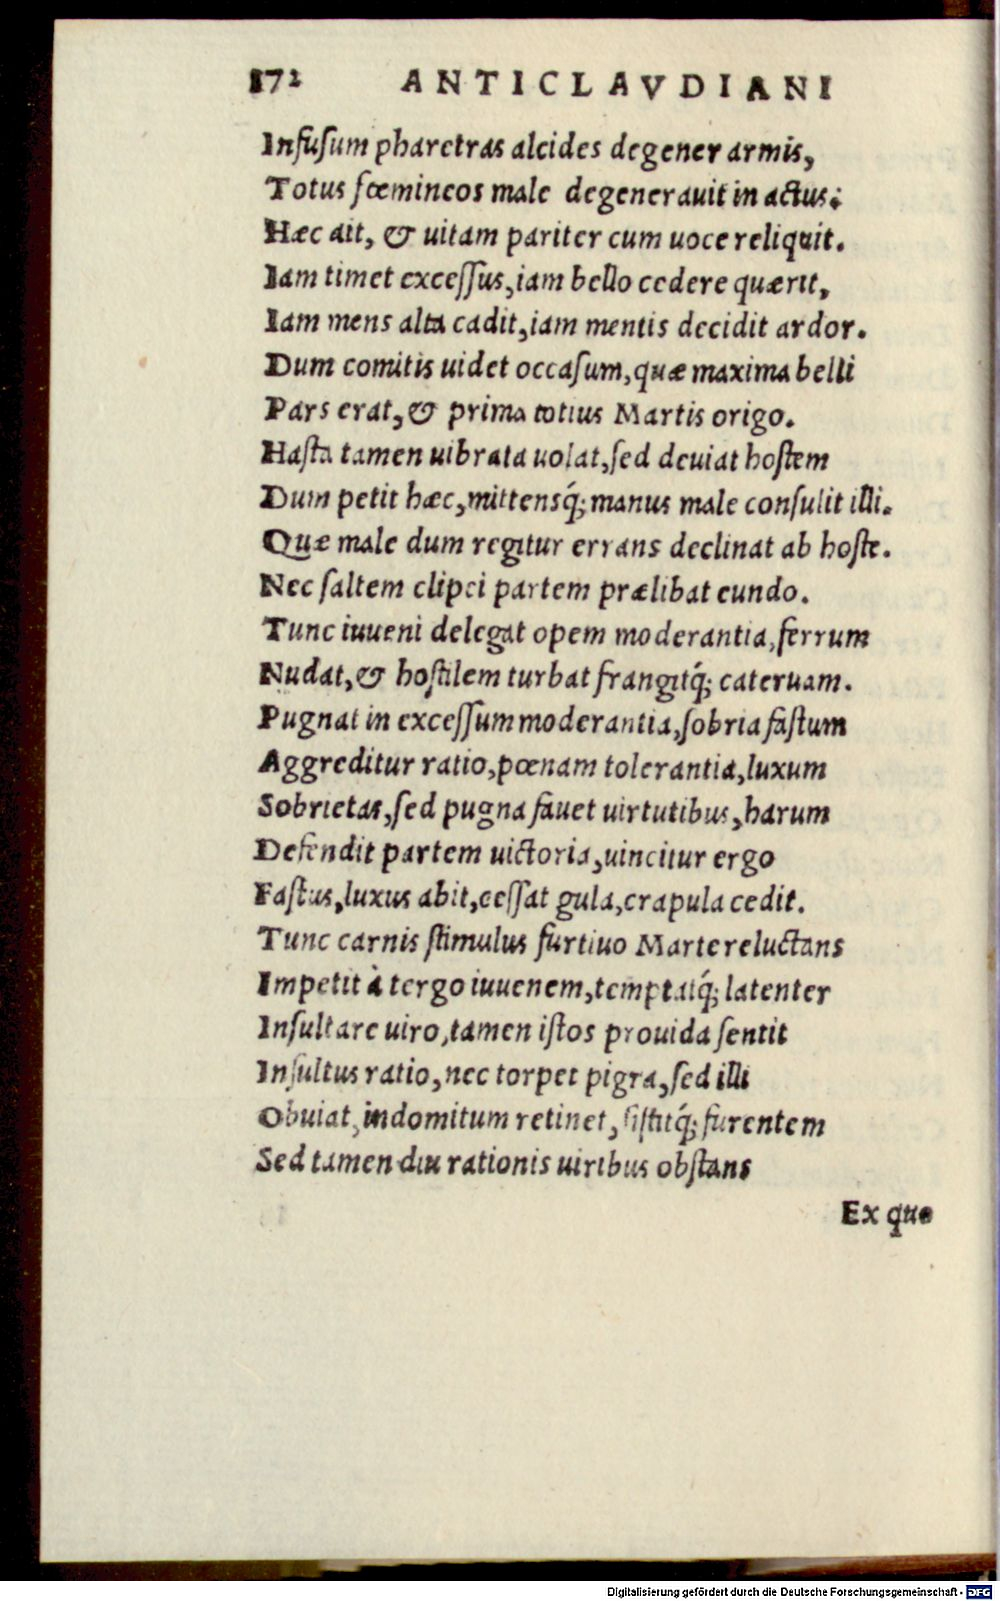 172 ANTICLAVDIANI
Infuſum pharetras alcides degener armis,
Totus fœmineos male degenerauit in actus:
Hæc ait, & uitam pariter cum uoce reliquit.
Iam timet exceſſus, iam bello cedere quærit,
Iam mens alta cadit, iam mentis decidit ardor.
Dum comitis uidet occaſum, quæ maxima belli
Pars erat, & prima totius Martis origo.
Haſta tamen uibrata uolat, ſed deuiat hoſtem
Dum petit hæc, mittensq́; manus male conſulit illi.
Quæ male dum regitur errans declinat ab hoſte.
Nec ſaltem clipei partem prælibat eundo.
Tunc iuueni delegat opem moderantia, ferrum
Nudat, & hoſtilem turbat frangitq́; cateruam.
Pugnat in exceſſum moderantia, ſobria faſtum
Aggreditur ratio, pœnam tolerantia, luxum
Sobrietas, ſed pugna fauet uirtutibus, harum
Defendit partem uictoria, uincitur ergo
Faſtus, luxus abit, ceſſat gula, crapula cedit.
Tunc carnis ſtimulus furtiuo Marte reluctans
Impetit à tergo iuuenem, temptatq́; latenter
Inſultare uiro, tamen iſtos prouida ſentit
Inſultus ratio, nec torpet pigra, ſed illi
Obuiat, indomitum retinet, ſiſtitq́; furentem
Sed tamen diu rationis uiribus obſtans
Ex quo
Digitalisierung gefördert durch die Deutsche Forschungsgemeinschaft - DFG